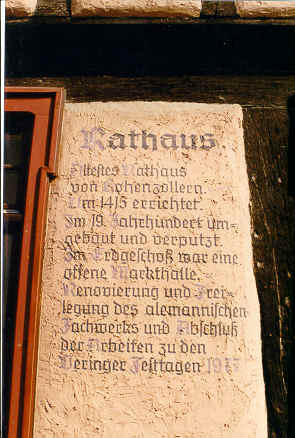 Rathaus
Ältestes Rathaus
von Hohenzollern.
Um 1415 errichtet.
Im 19. Jahrhundert um-
gebaut und verputzt.
Im Erdgeschoß war eine
offene Markthalle.
Renovierung und Frei-
legung des alemannischen
Fachwerks und Abschluß
der Arbeiten zu den
Veringer Festtagen